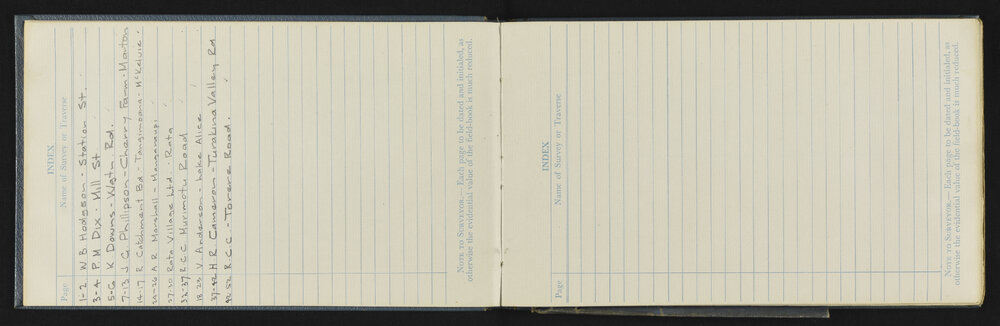 INDEX
Page Name of Survey or Traverse
1-2 W B Hodgson - Station St.
3-4 P M Dix - Mill St
5-6 K Downs - Watn Rd.
7-13 J G Phillipson - Cherry Farm - Marton
14-17 R Catchment Bd - Tangimoana - McKelvie
A R Marshall - Mangaraupi
27-30 Rata Village Ltd. - Rata
32-37 R C C Murimotu Road
18-23 V Anderson - Lake Alice
37-42 H R Cameron - Turakina Valley Rd
R.C.C. - Torere Road.
NOTE TO SURVEYOR.— Each page to be dated and initialed, as
otherwise the evidential value of the field-book is much reduced.
INDEX
Page Name of Survey or Traverse
NOTE TO SURVEYOR.— Each page to be dated and initialed, as
otherwise the evidential value of the field-book is much reduced.